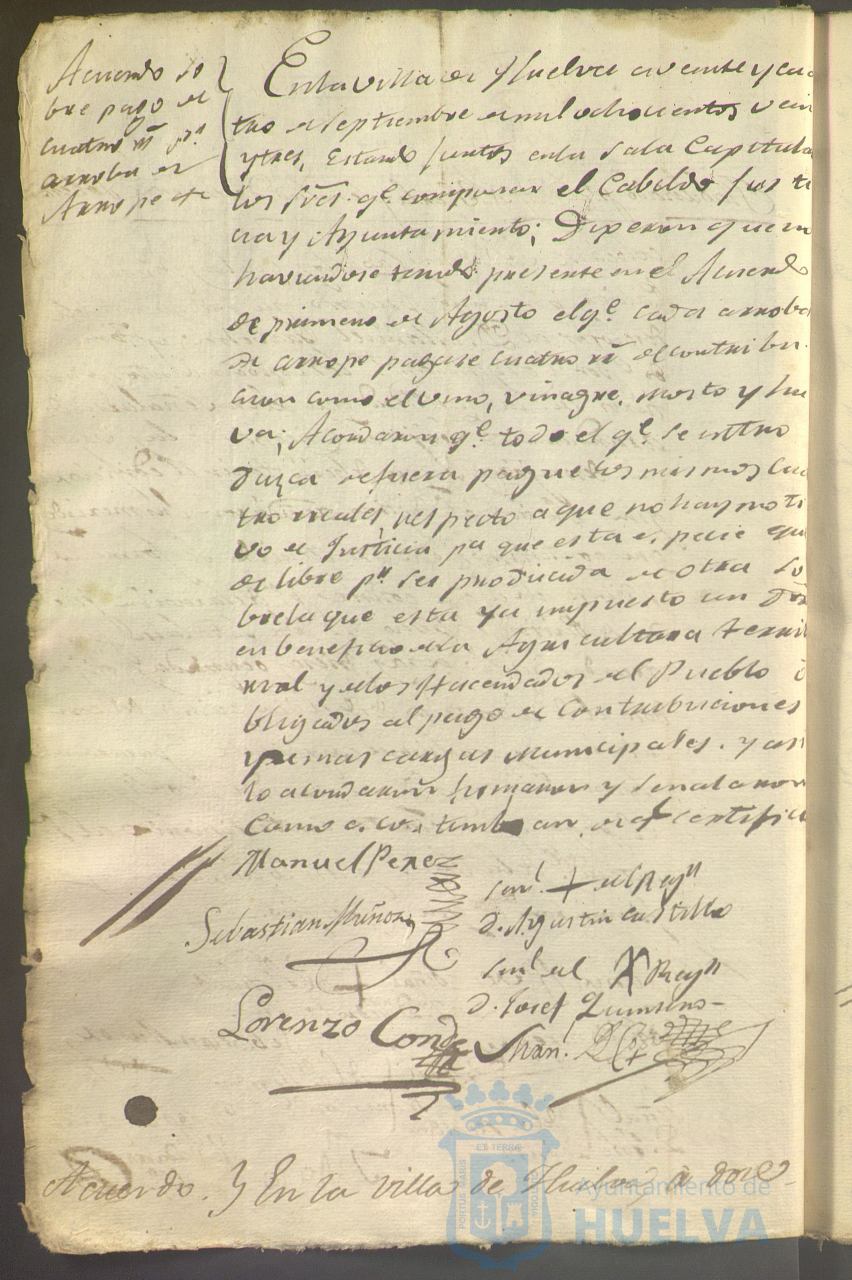 Acuerdo so
bre pago de
cuatro rr. pr.
arroba de
Arrope etc
En la villa de Huelva a veinte y cua
tro de Septiembre de mil ochocientos vein
y tres, Estando juntos en la Sala Capitula
los Sres. qe. componen el Cabildo Justi
cia y Ayuntamiento; Dijeron que
haviendose tenido presente en el Acuerdo
de primero de Agosto el qe. cada arroba
de arrope pagase cuatro rr. de contribu
cion como el vino, vinagre, mosto y hu
va; Acordaron qe. todo el qe. se intro
duzca de fuera pague los mismos cua
tro reales, respecto a que no hay moti
vo de Justicia pa que esta especie que
de libre pr. ser producida de otra so
bre la que esta ya impuesto un
en beneficio de la Agricultura terri
rial y de los Hacendados del Pueblo o
bligados al pago de Contribuciones
y demas cargas municipales. y asi
lo acordaron firmaron y señalaron
Como acostumbran, de qe certifico
Manuel Perez
Señl. + del Regr.
Sebastian Muñoz
d. Agustin Castillo
Señl. del X Regr.
d. Josef Quintero
Lorenzo Conde
Acuerdo. } En la villa de Huelva, a doze
EX TERRÆ
Ayuntamiento de
HUELVA